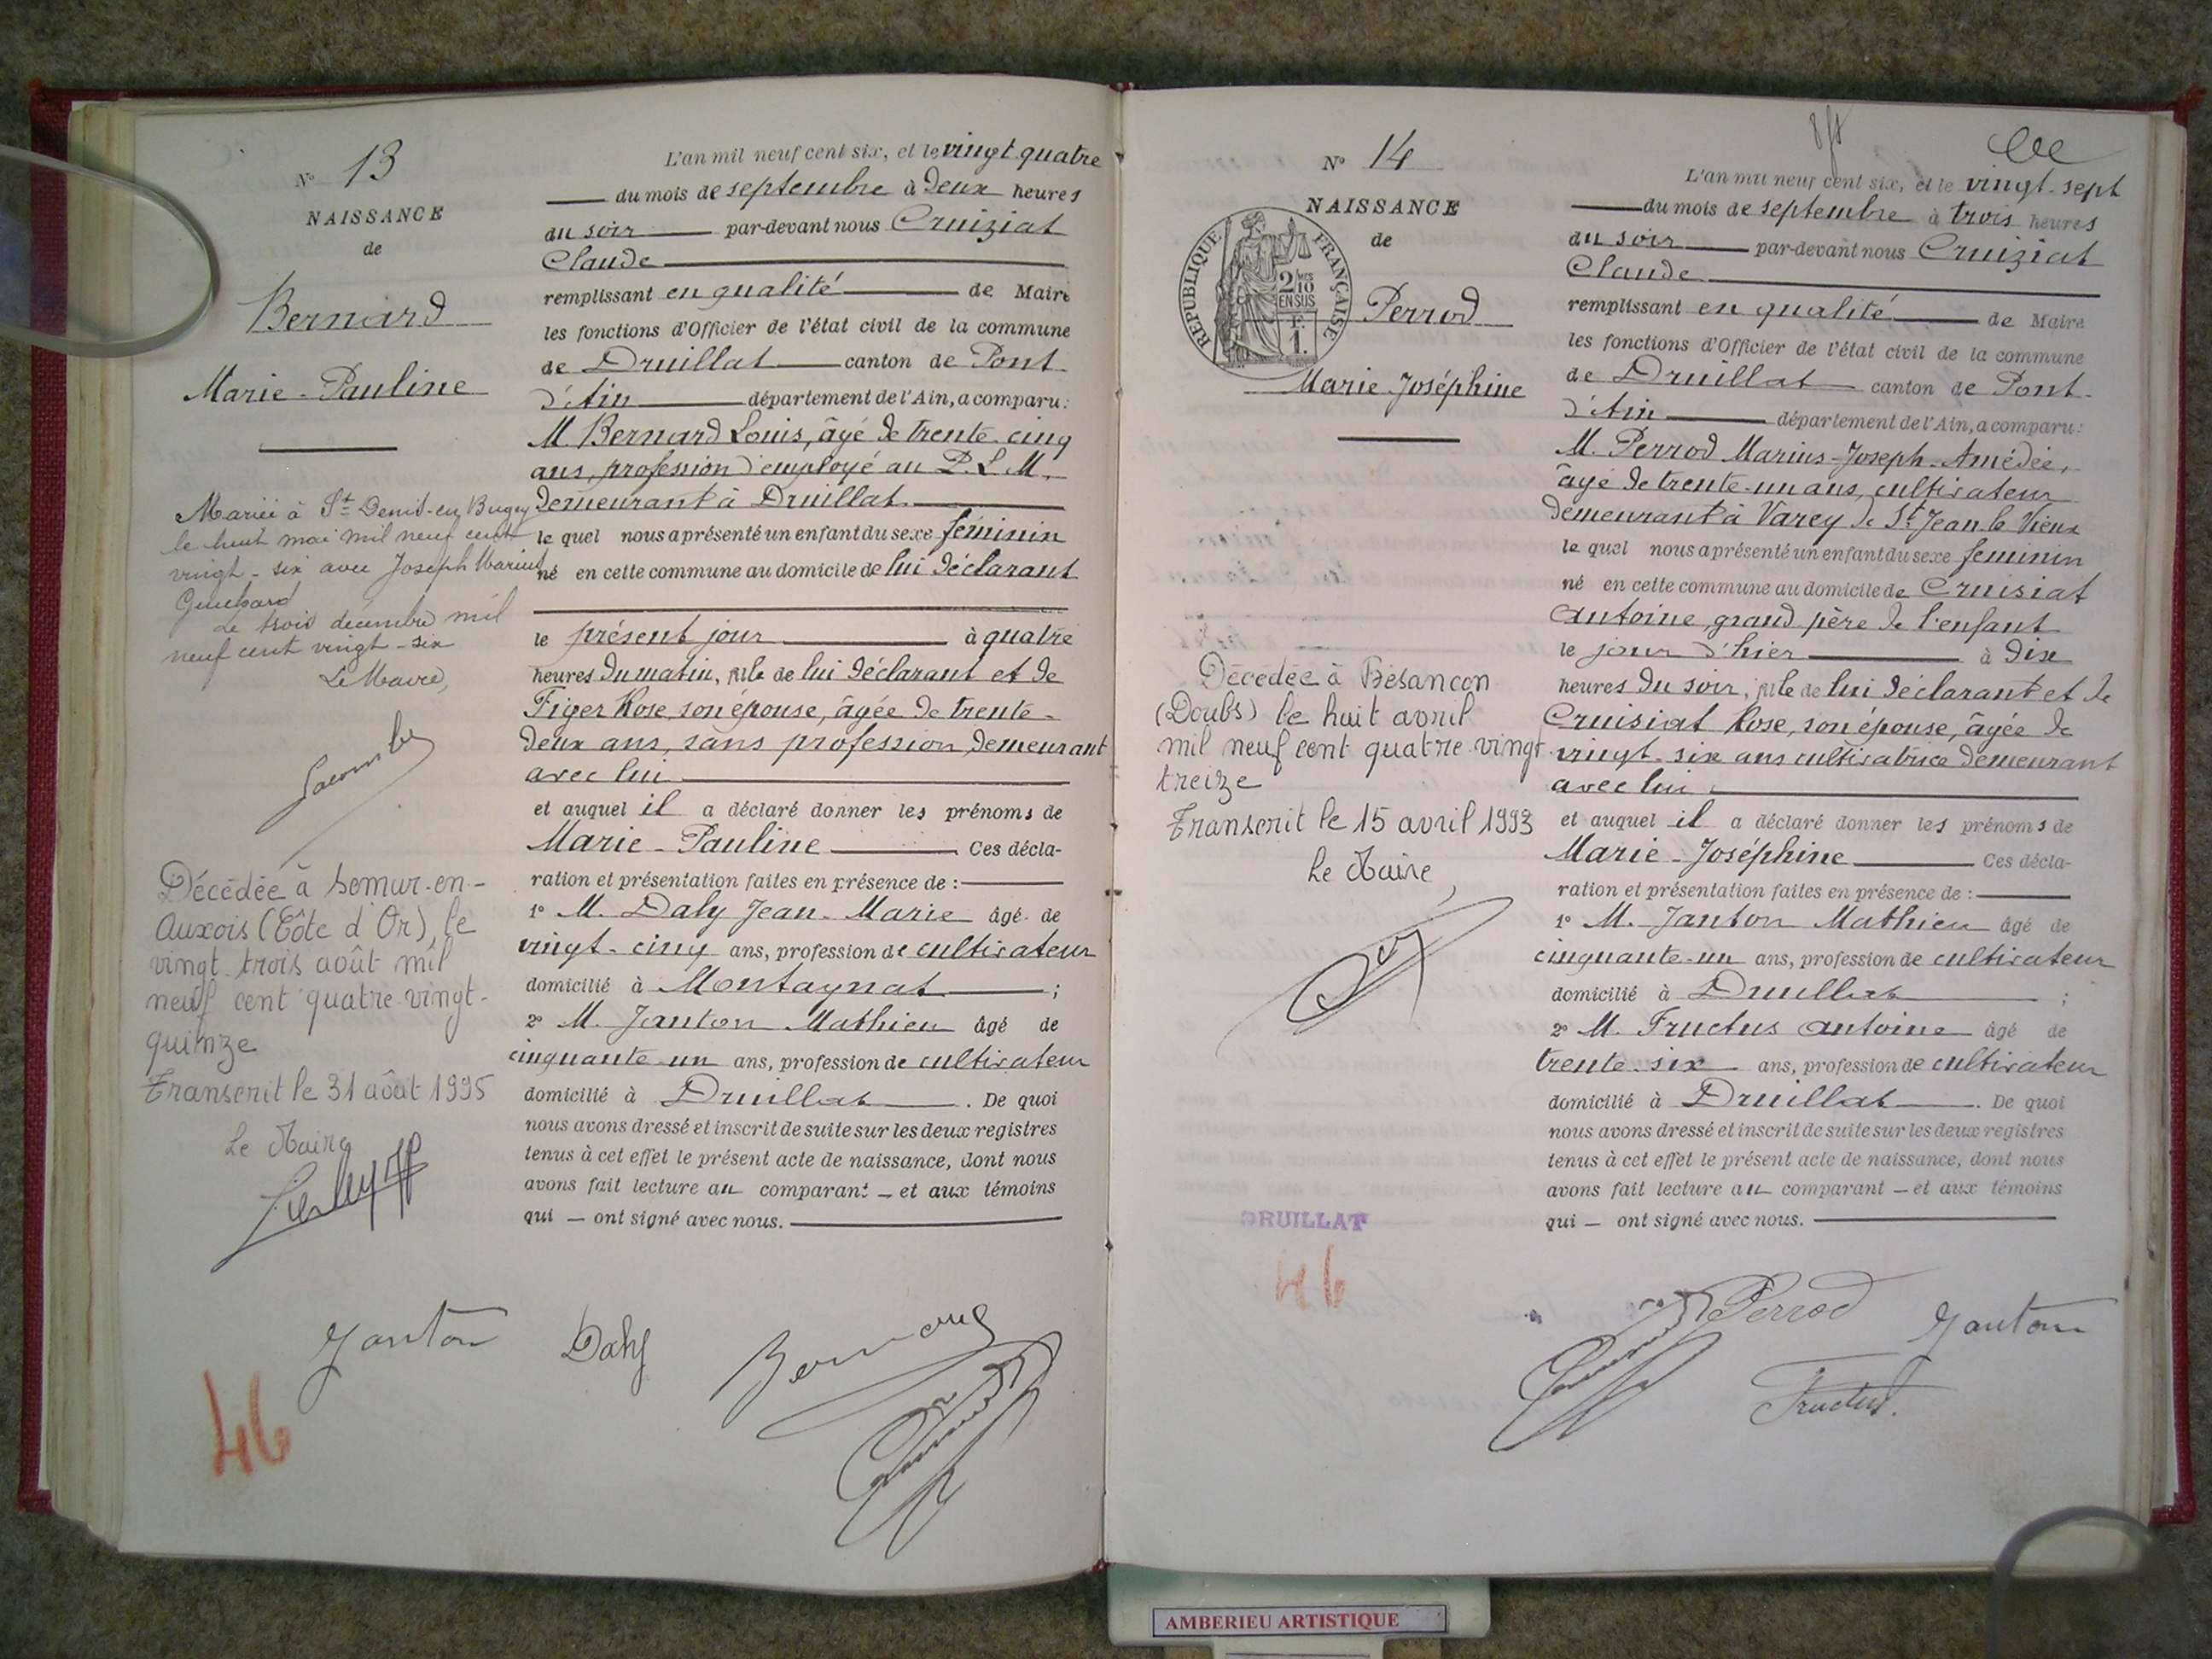 N° 13
NAISSANCE
de
Bernard
Marie-Pauline
Mariée à St Denis-en Bugey
le huit mai mil neuf cent
vingt-six avec Joseph Marius
Guichard
Le trois décembre mil
neuf cent vingt-six
Le Maire,
Lacombe
Décédée à Semur-en-
Auxois (Côte d'Or), le
vingt trois août mil
neuf cent quatre-vingt-
quinze
Transcrit le 31 août 1995
Le Maire
46
L'an mil neuf cent six, et le vingt quatre
du mois de septembre à deux heures
du soir par-devant nous Cruiziat
Claude
remplissant en qualité de Maire
les fonctions d'Officier de l'état civil de la commune
de Druillat canton de Pont-
d'Ain département de l'Ain, a comparu:
M. Bernard Louis, âgé de trente-cinq
ans, profession d'employé au P.L.M.
demeurant à Druillat
le quel nous a présenté un enfant du sexe féminin
né en cette commune au domicile de lui déclarant
le présent jour à quatre
heures du matin, file de lui déclarant et de
Figer Rose, son épouse, âgée de trente-
deux ans, sans profession, demeurant
avec lui
et auquel il a déclaré donner les prénoms de
Marie-Pauline Ces décla-
ration et présentation faites en présence de :
1° M. Daly Jean-Marie âgé de
vingt-cinq ans, profession de cultivateur
domicilié à Montagnat ;
2° M. Janton Mathieu âgé de
cinquante-un ans, profession de cultivateur
domicilié à Druillat . De quoi
nous avons dressé et inscrit de suite sur les deux registres
tenus à cet effet le présent acte de naissance, dont nous
avons fait lecture au comparant — et aux témoins
qui — ont signé avec nous.
Janton Daly Bernard
N° 14
NAISSANCE
de
RÉPUBLIQUE FRANÇAISE
2/10 MES
EN SUS
F.
1.
Perrod
Marie Joséphine
Décédée à Besançon
(Doubs) le huit avril
mil neuf cent quatre vingt-
treize
Transcrit le 15 avril 1993
Le Maire,
DRUILLAT
46
L'an mil neuf cent six, et le vingt-sept
du mois de septembre à trois heures
du soir par-devant nous Cruiziat
Claude
remplissant en qualité de Maire
les fonctions d'Officier de l'état civil de la commune
de Druillat canton de Pont-
d'Ain département de l'Ain, a comparu:
M. Perrod Marius-Joseph-Amédée,
âgé de trente-un ans, cultivateur
demeurant à Varey de St Jean le Vieux
le quel nous a présenté un enfant du sexe feminin
né en cette commune au domicile de Cruisiat
Antoine, grand père de l'enfant
le jour d'hier à dix
heures du soir, file de lui déclarant et de
Cruisiat Rose, son épouse, âgée de
vingt-six ans cultivatrice demeurant
avec lui
et auquel il a déclaré donner les prénoms de
Marie-Joséphine Ces décla-
ration et présentation faites en présence de :
1° M. Janton Mathieu âgé de
cinquante-un ans, profession de cultivateur
domicilié à Druillat ;
2° M. Fructus Antoine âgé de
trente-six ans, profession de cultivateur
domicilié à Druillat . De quoi
nous avons dressé et inscrit de suite sur les deux registres
tenus à cet effet le présent acte de naissance, dont nous
avons fait lecture au comparant — et aux témoins
qui — ont signé avec nous.
Perrod Janton
Fructus.
AMBERIEU ARTISTIQUE